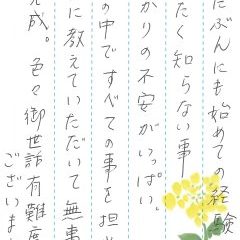 たぶんにも始めての経験
たく知らない事
かりの不安がいっぱい、
の中ですべての事を担
に教えていただいて無事
完成。色々御世話有難度
ございま